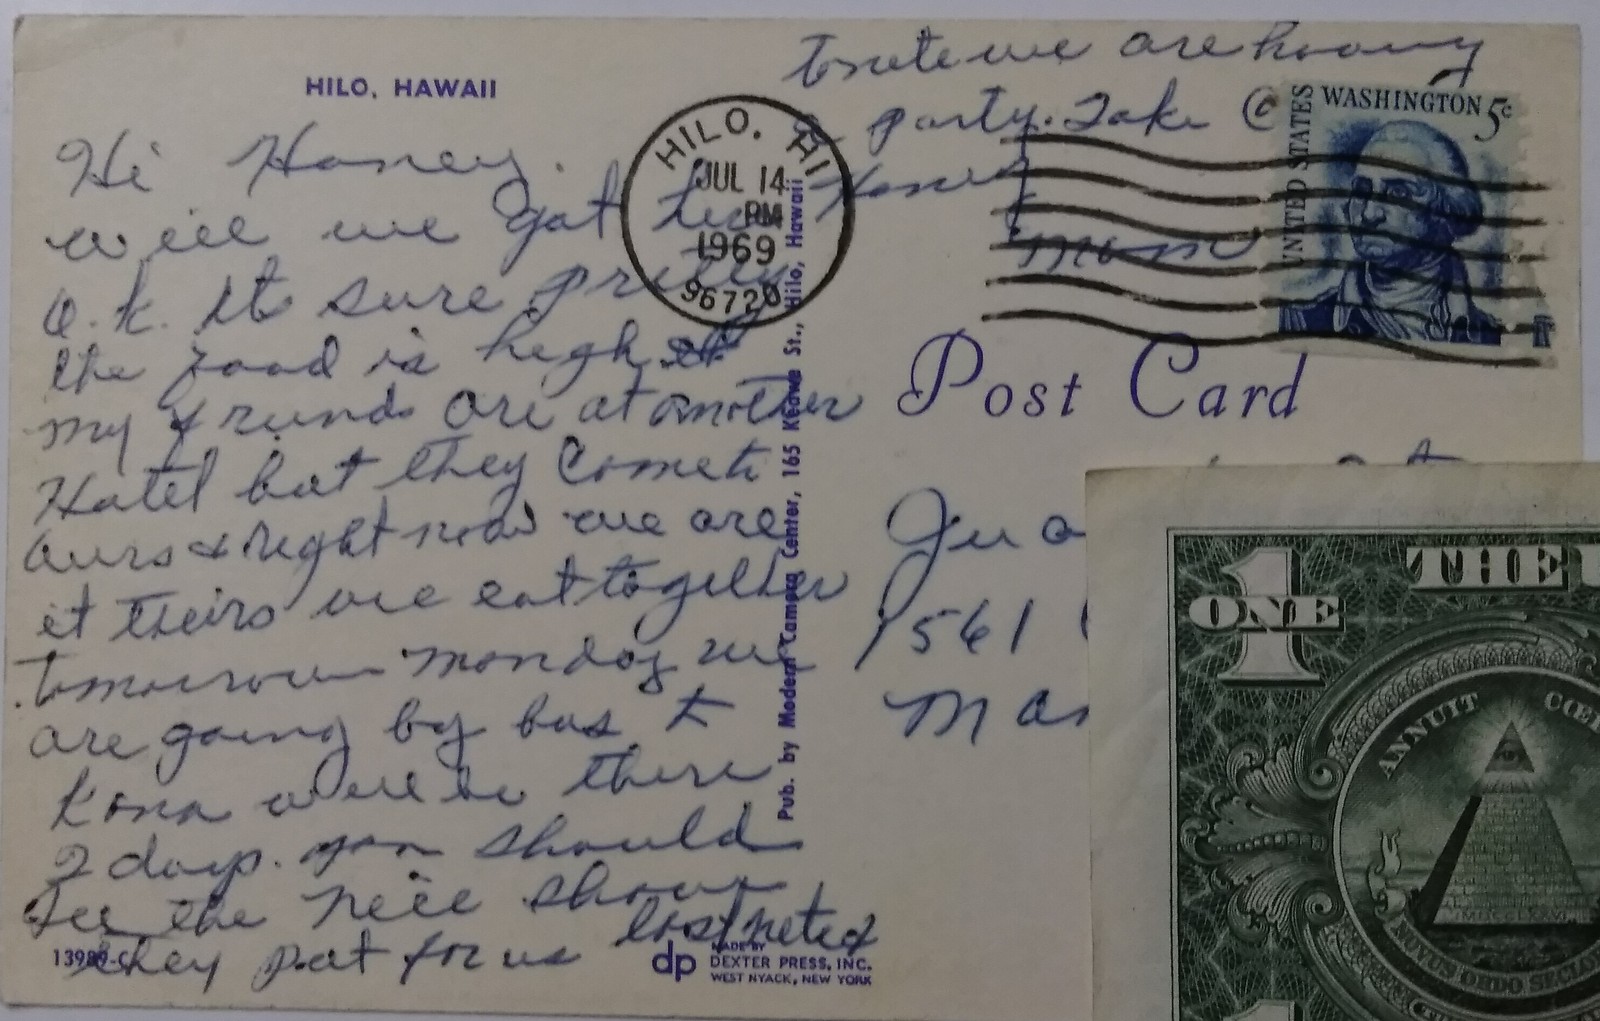 HILO, HAWAII
Hi Honey.
Will we got here
O.K. It sure pretty
the food is high
my friends are at another
Hotel but they come to
ours & right now we are
at theirs we eat together
tomorrow monday we
are going by bus to
Kona will be there
2 days. you should
See the nice show
they put for us last nite &
tonite we are having
a party. Take C
Honey
Mom
HILO, HI
JUL 14
PM
1969
96720
UNITED STATES
WASHINGTON 5c
Post Card
Pub. by Modern Camera Center, 165 Keawe St., Hilo, Hawaii
Jua
1561
Man
13989-C
dp
MADE BY
DEXTER PRESS, INC.
WEST NYACK, NEW YORK
THE U
1
ONE
ANNUIT CŒ
MDCCLXXVI
NOVUS ORDO SECLO